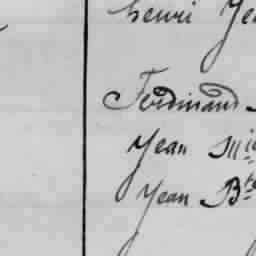 henri Jea
Ferdinand
Jean Mic
Jean Bte